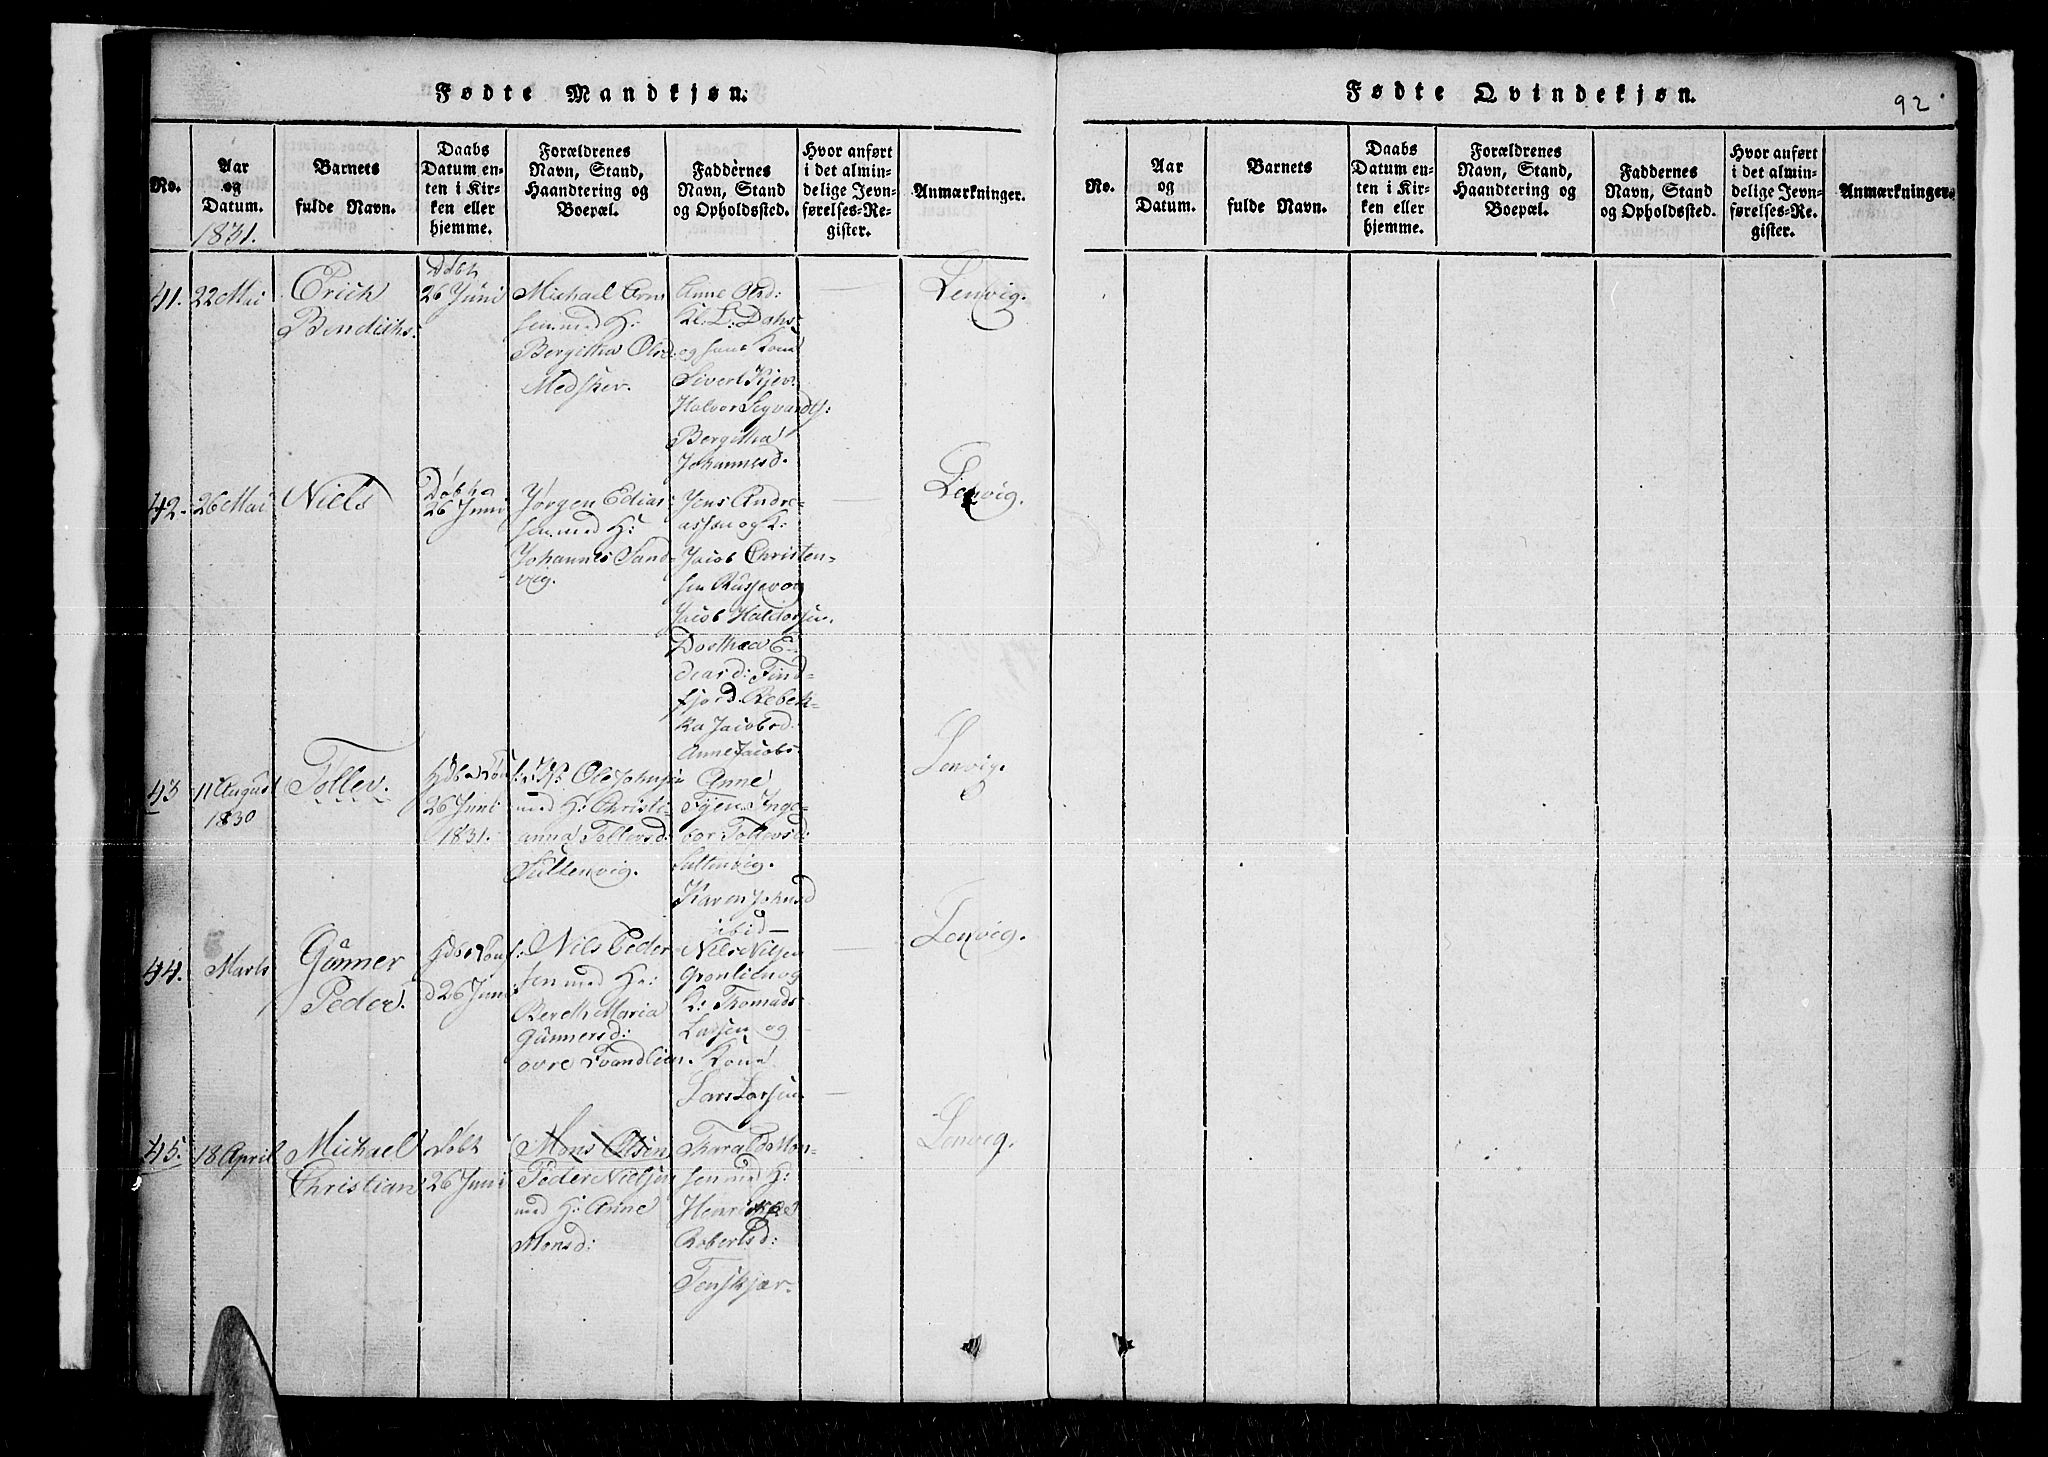 Fødte Mandkjøn.
No.
Aar
og
Datum.
1831.
Barnets
fulde Navn.
Daabs
Datum en-
ten i Kir-
ken eller
hjemme.
Forældrenes
Navn, Stand,
Haandtering og
Boepæl.
Faddernes
Navn, Stand
og Opholdssted.
Hvor anført
i det almin-
delige Jevn-
førelses-Re-
gister.
Anmærkninger.
41.
22 Mai
Erich
Bendichs
Døbt
26 Juni
Michael Arns
sen med H:
Bergitha Olsd:
Medskev.
Anne Olsd:
Kl: L: Dahs
og hans Kone
Sivert
Halvor Sigvardts:
Bergitha
Johannesd.
Lenvig.
42.
26 Mai
Niels
26 Juni
Jørgen Edias
sen med H:
Johannes Sand
vig.
Jens Andre-
assen og K:
Jacob Christen-
sen Russevog
Jacob Haldorsen.
Dorthea E-
deasd: Find-
fjord. Rebek-
ka Jacobsd.
Anne Jacobs.
Lenvig.
43
11 August
1830
Tollev.
26 Juni
1831.
Ole Johnsen
med H: Christi-
anna Tollevsd:
Sultenvig.
Anne
Inge-
bor Tollevsd:
Sultenvig.
Karen Johnsd
ibid
Lenvig.
44.
Marts
Gunner
Peder.
d 26 Juni
Nils Peder
sen med H:
Bereth Maria
Gunnersd:
øvre Svandlien.
Nils Nilsen
Grønlien og
K: Thomads
Larsen og
Kone
Lars Larsen
Lenvig.
45.
18 April
Michael
Christian
Døbt
26 Juni
Mons Olsen
Peder Nielsen
med H: Anne
Monsd:
Tharald Mon-
sen med H:
Henrikke
Robertsd:
Tenskjær.
Lenvig.
Fødte Qvindekjøn.
92
No.
Aar
og
Datum.
Barnets
fulde Navn.
Daabs
Datum en-
ten i Kir-
ken eller
hjemme.
Forældrenes
Navn, Stand,
Haandtering og
Boepæl.
Faddernes
Navn, Stand
og Opholdssted.
Hvor anført
i det almin-
delige Jevn-
førelses-Re-
gister.
Anmærkninger.